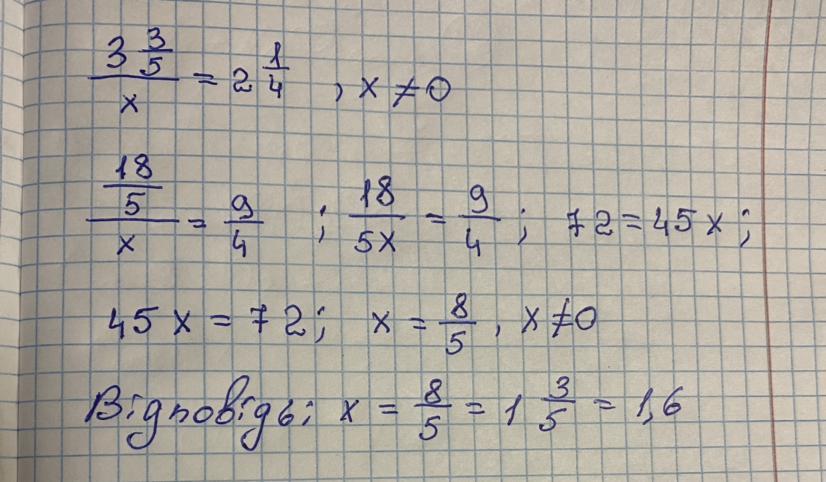 3 3/5 / x = 2 1/4 , x ≠ 0
18/5 / x = 9/4 ; 18/5x = 9/4 ; 72 = 45x ;
45x = 72 ; x = 8/5 , x ≠ 0
Відповідь: x = 8/5 = 1 3/5 = 1,6